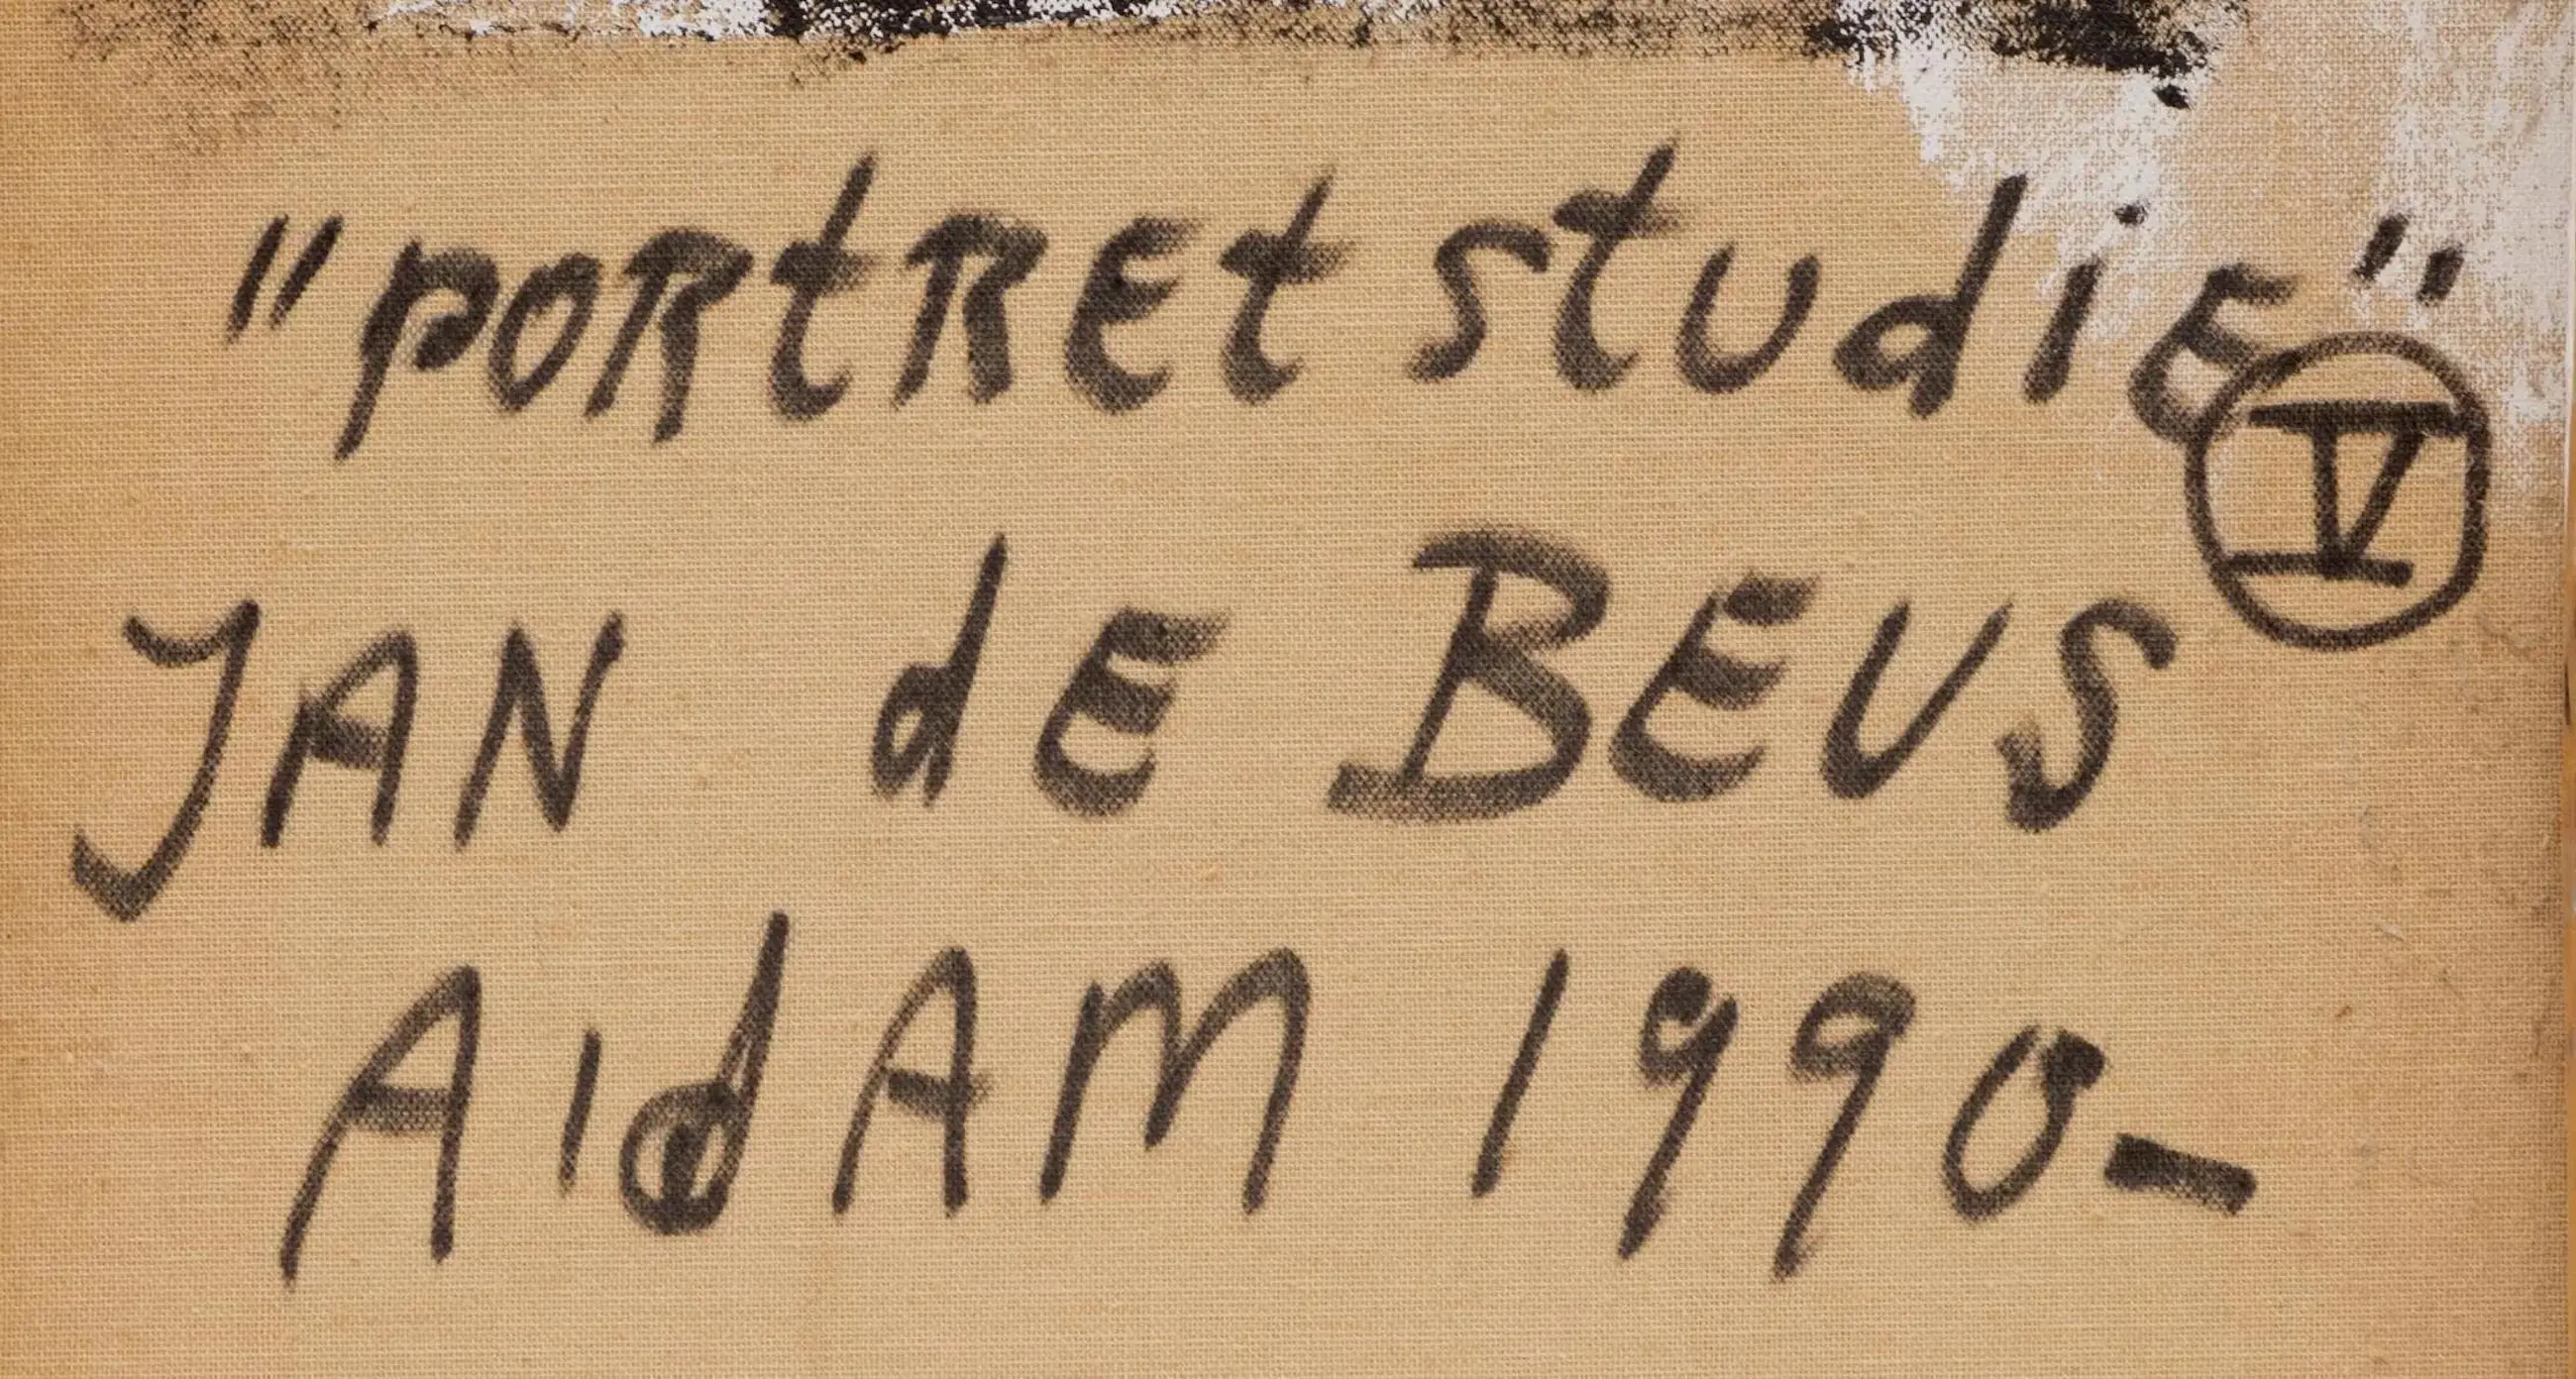 "PORtREt studiE" V
JAN dE BEUS
A'dAM 1990-